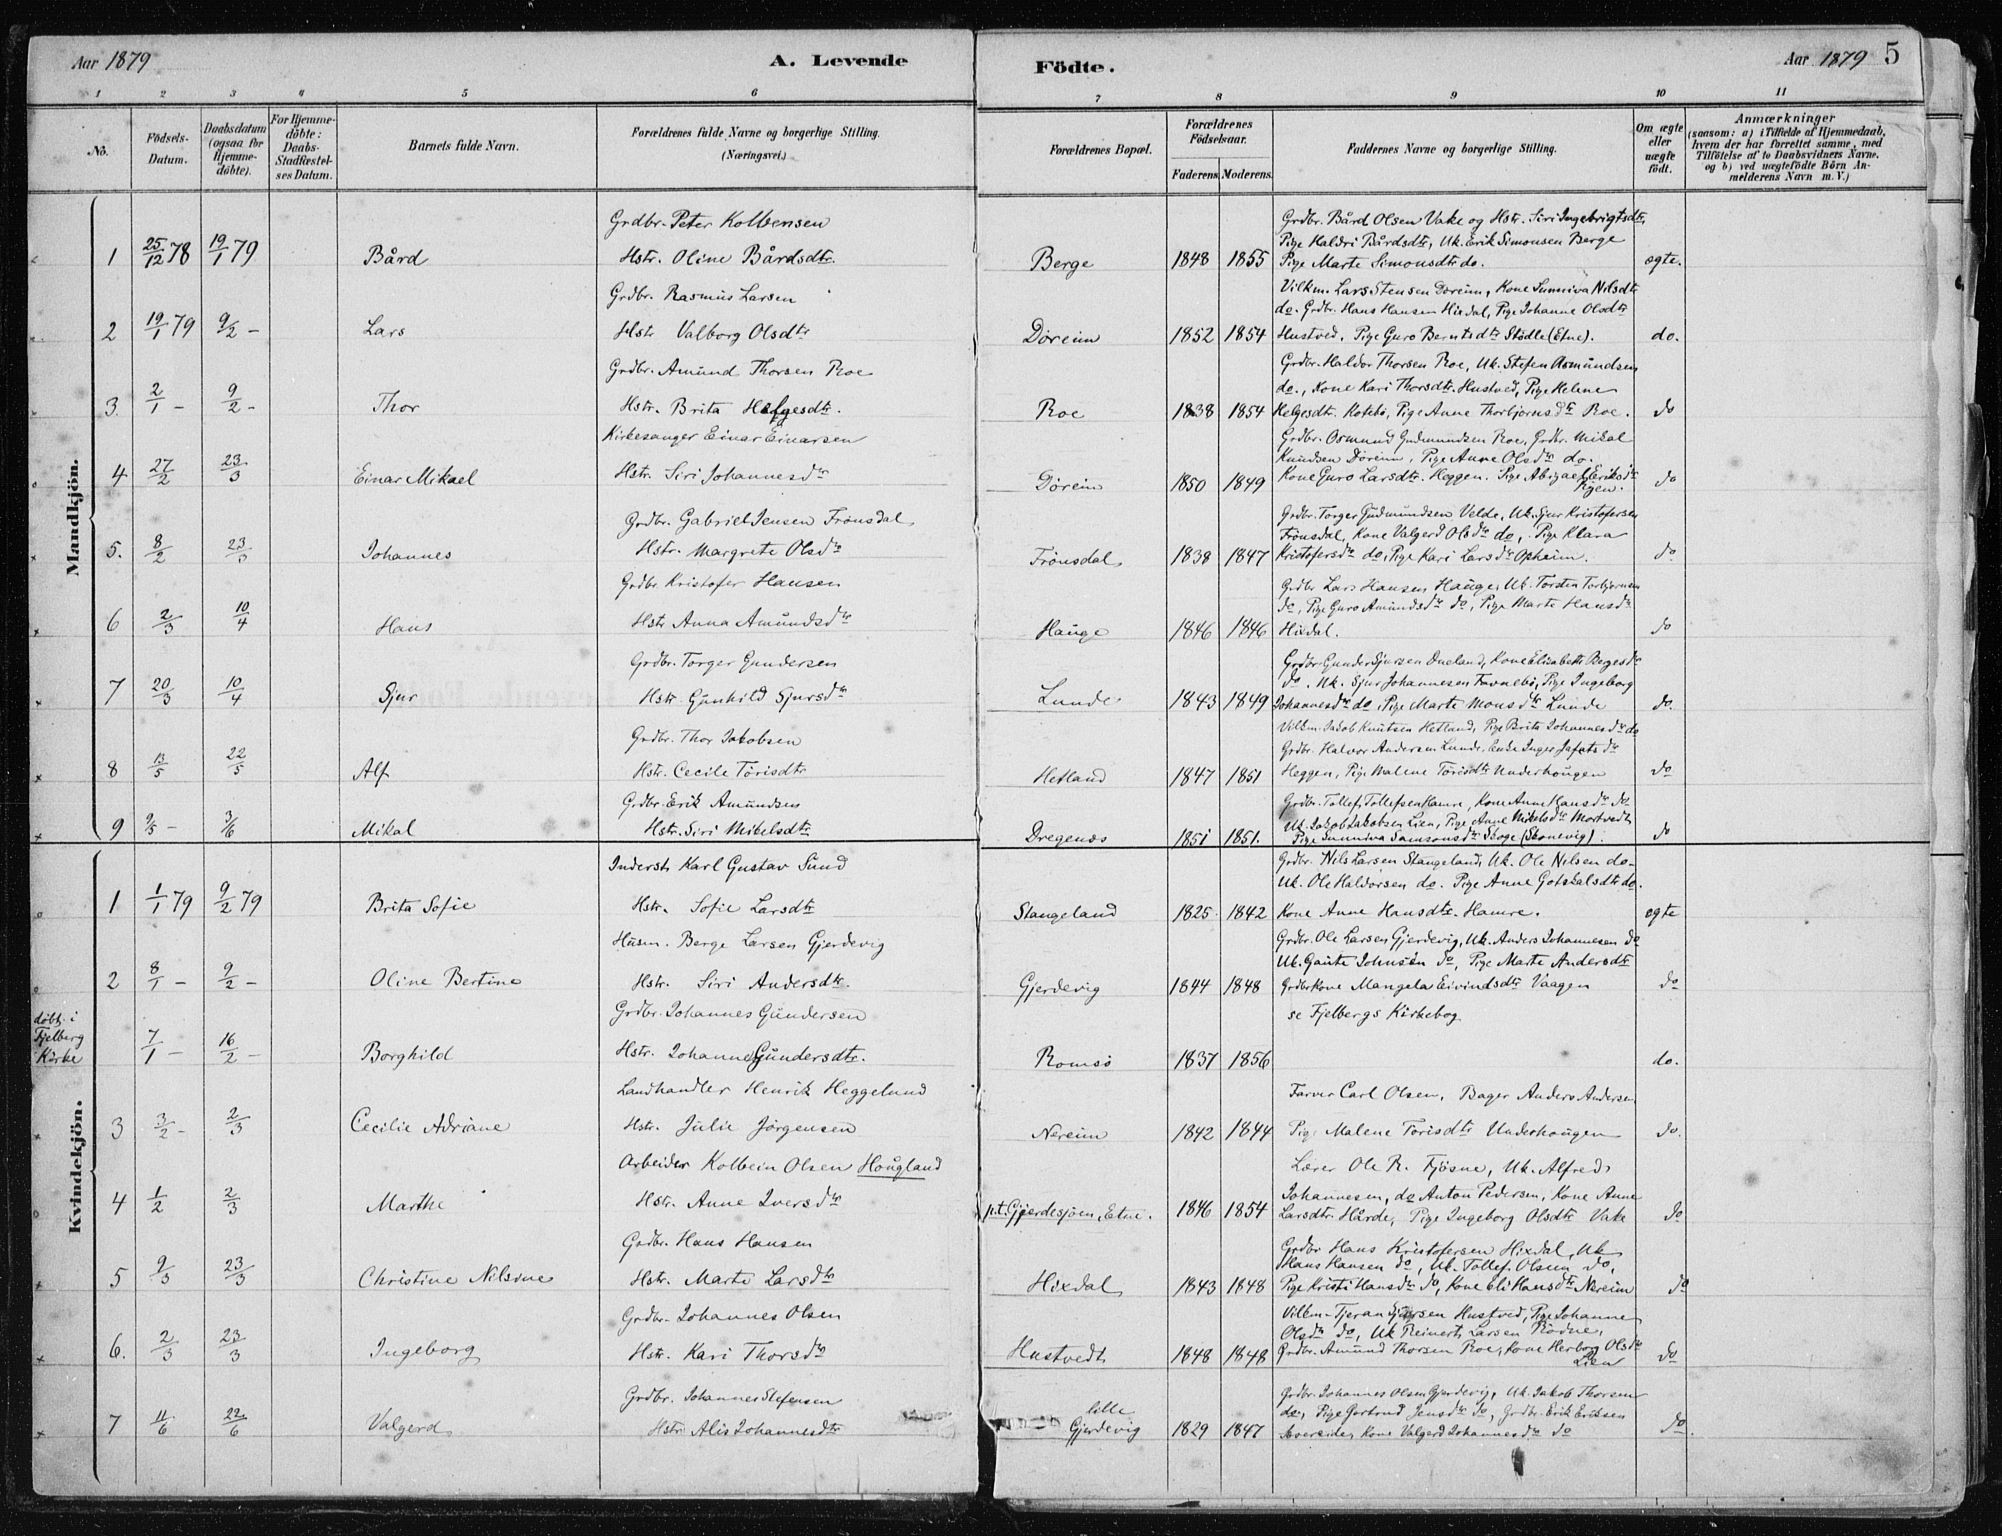 Aar 1879 A. Levende Födte. Aar 1879 5
1 2 3 4 5 6 7 8 9 10 11
No. Födsels-Datum. Daabsdatum (ogsaa for Hjemme-döbte). For Hjemme-döbte: Daabs-Stadfæstel-ses Datum. Barnets fulde Navn. Forældrenes fulde Navne og borgerlige Stilling. (Næringsvei.) Forældrenes Bopæl. Forældrenes Födselsaar. Faderens. Moderens. Faddernes Navne og borgerlige Stilling. Om ægte eller uægte födt. Anmærkninger (saasom: a) i Tilfælde af Hjemmedaab, hvem der har forrettet samme, med Tilföielse af to Daabsvidners Navne, og b) ved uægtefödte Börn An-melderens Navn m. V.)
Mandkjön.
Grdbr. Peter Kolbensen
Grdbr. Bård Olsen Vake og Hstr. Siri Ingebrigtsdtr,
Pige Haldri Bårdsdtr, Uk. Erik Simonsen Berge
1 25/12 78 19/1 79 Bård Hstr. Oline Bårdsdtr. Berge 1848 1855 Pige Marte Simonsdtr do. ægte.
Grdbr. Rasmus Larsen
Vilkm. Lars Stensen Döreim, Kone Sunniva Nilsdtr
do. Grdbr. Hans Hansen Hixdal, Pige Johanne Olsdtr
2 19/1 79 9/2 - Lars Hstr Valborg Olsdtr Döreim 1852 1854 Hustved, Pige Guro Berntsdtr Stödle (Etne). do.
Grdbr. Amund Thorsen Roe
Grdbr. Haldor Thorsen Roe, Uk. Stefen Asmundsen
do., Kone Kari Thorsdtr. Hustved, Pige Helene
3 2/1 - 9/2 - Thor Hstr. Brita Helgesdtr. Roe 1838 1854 Helgesdtr. Kotebö, Pige Anne Thorbjörnsdtr Roe. do
Kirkesanger Einar Einarsen
Grdbr. Osmund Gudmundsen Roe, Grdbr. Mikal
Knudsen Döreim, Pige Anne Olsdtr do.
4 27/2 23/3 Einar Mikael Hstr. Siri Johannesdtr Döreim 1850 1849 Kone Guro Larsdtr. Heggen. Pige Abigael Eriksdtr do
Grdbr. Gabriel Jensen Frönsdal
Grdbr. Torger Gudmundsen Velde, Uk. Sjur Kristofersen
Frönsdal, Kone Valgerd Olsdtr do, Pige Klara
5. 8/2 23/3 Johannes Hstr. Margrete Olsdtr Frönsdal 1838 1847 Kristofersdtr do, Pige Kari Larsdtr Opheim. do
Grdbr Kristofer Hansen
Grdbr Lars Hansen Hauge, Uk. Torsten Torbjörnsen
do, Pige Guro Amundsdtr do, Pige Marte Hansdtr
6 2/3 10/4 Hans Hstr Anna Amundsdtr Hauge 1846 1846 Hixdal. do
Grdbr. Torger Gundersen
Grdbr Gunder Sjursen Oneland, Kone Elisabeth Bergesdtr
do. Uk. Sjur Johannesen Tavnebö, Pige Ingeborg
7 20/3 10/4 Sjur Hstr. Gunhild Sjursdtr Lunde 1843 1849 Johannesdtr do, Pige Marte Monsdtr Lunde do.
Grdbr. Thor Jakobsen
Vilkm. Jakob Knutsen Hetland, Pige Brita Johannesdtr do
Grdbr. Halvor Andersen Lunde, Enke Inger Jafetsdtr
8 13/5 22/5 Alf Hstr. Cecile Törisdtr Hetland 1847 1851 Heggen, Pige Malene Törisdtr Underhougen do
Grdbr. Erik Amundsen
Grdbr. Tollef Tollefsen Hamre, Kone Anne Hansdtr do
Uk. Jakob Jakobsen Lien, Pige Anne Mikelsdtr Mortvedt
9 9/5 - 3/6 Mikal Hstr. Siri Mikelsdtr Dregenæs 1851 1851. Pige Sunniva Samsonsdtr Skoge (Skonevig). do
Kvindekjön.
Inderst. Karl Gustav Sund
Grdbr. Nils Larsen Stangeland, Uk. Ole Nilsen do.
Uk. Ole Haldorsen do. Pige Anne Gotskalsdtr do.
1 1/1 79 9/2 79 Brita Sofie Hstr. Sofie Larsdtr Stangeland 1825 1842 Kone Anne Hansdtr. Hamre. ægte
Husm. Berge Larsen Gjerdevig
Grdbr. Ole Larsen Gjerdevig, Uk. Anders Johannesen do
Uk. Gaute Johnsön do, Pige Marte Andersdtr
2 8/1 - 9/2 - Oline Bertine Hstr. Siri Andersdtr. Gjerdevig 1844 1848 Grdbrkone Mangela Eivindsdtr Vaagen do
döbt i Fjelberg Kirke
Grdbr. Johannes Gundersen
se Fjelbergs Kirkebog
7/1 - 16/2 - Borghild Hstr. Johanne Gundersdtr. Romsö 1837 1856 do.
Landhandler Henrik Heggelund
Farver Carl Olsen, Bager Anders Andersen
3 3/2 - 2/3 Cecilie Adriane Hstr. Julie Jörgensen Nereim 1842 1844 Pige Malene Torisdtr Underhougen do.
Arbeider Kolbein Olsen Hougland
Lærer Ole R. Fjösne, Uk. Alfred
4 1/2 2/3 Marthe Hstr. Anne Iversdtr p.t. Gjerdesjöen, Etne. 1846 1854 Johannesen, do Anton Pedersen, Kone Anne
Larsdtr. Hårde, Pige Ingeborg Olsdtr Vake do
Grdbr. Hans Hansen
Grdbr Hans Kristofersen Hixdal, Uk
Hans Hansen do, Uk. Tollef Olsen do,
5 9/3 23/3 Christine Nilsine Hstr. Marte Larsdtr Hixdal 1843 1848 Pige Kristi Hansdtr do, Kone Eli Hansdtr Nereim do
Grdbr. Johannes Olsen
Vilkm. Tjeran Sjursen Hustved, Pige Johanne
Olsdtr do, Uk Reinert Larsen Rödne,
6. 2/3 23/3 Ingeborg Hstr. Kari Thorsdtr Hustvedt 1848 1848 Grdbr. Amund Thorsen Roe, Kone Herborg Olsdtr Lien do
Grdbr. Johannes Stefensen
Grdbr. Johannes Olsen Gjerdevig, Uk. Jakob Thorsen
do, Pige Gertrud Jensdtr do, Grdbr. Erik Eriksen
7 11/6 22/6 Valgerd Hstr Alis Johannesdtr lille Gjerdevig 1829 1847 Kone Valgerd Johannesdtr do do